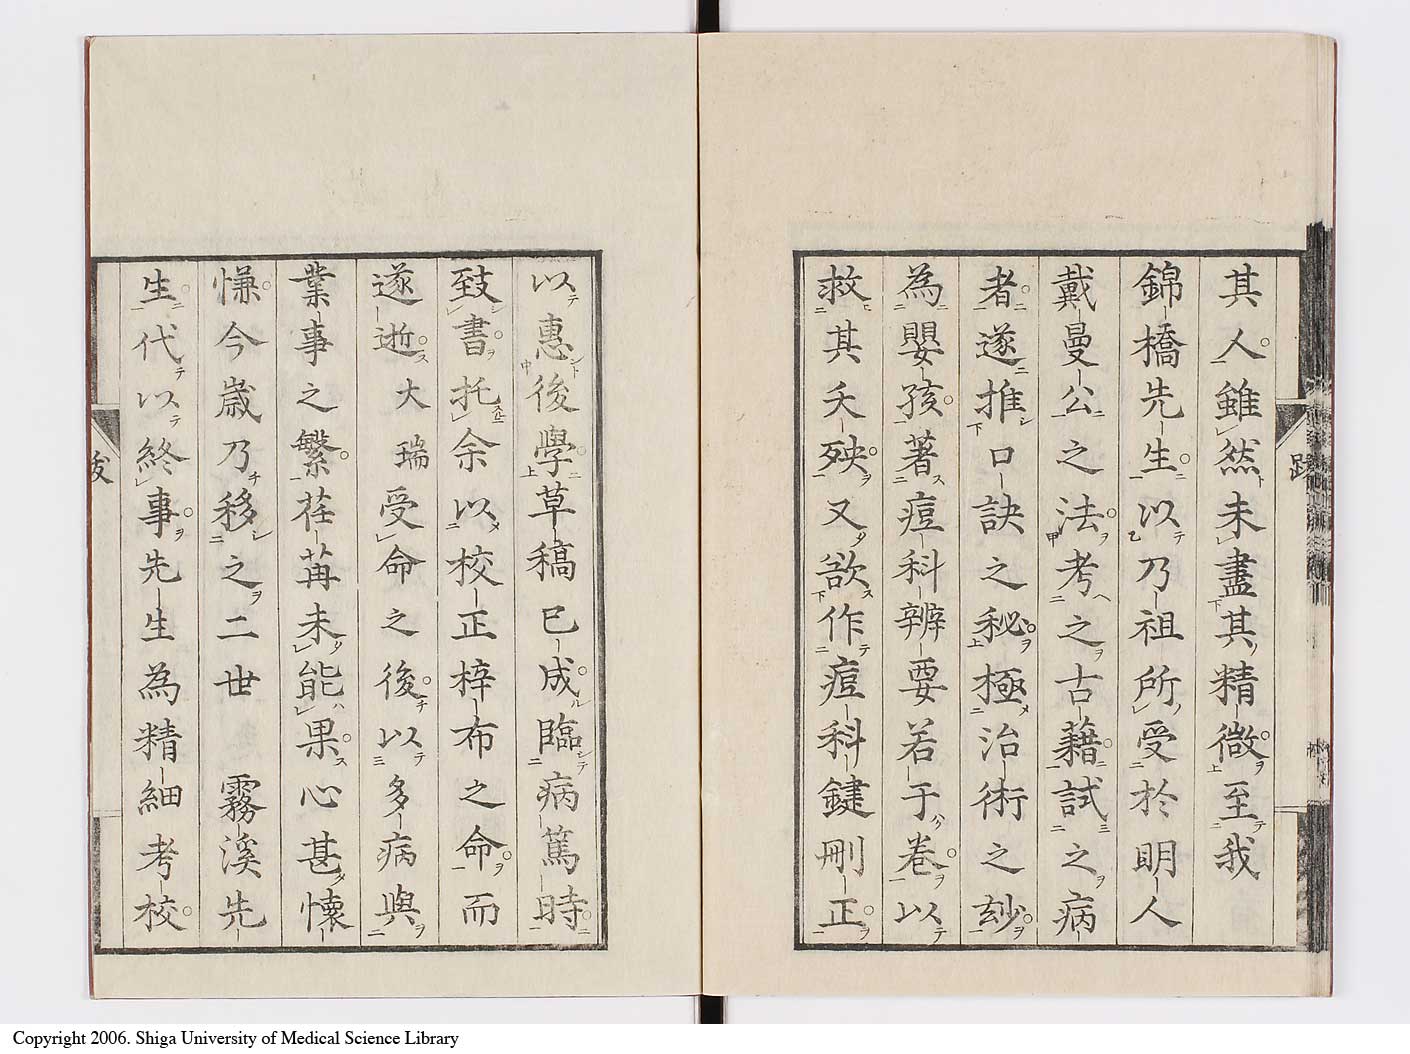 其人雖然未盡其精微至我
錦橋先生以乃祖所受於明人
戴曼公之法考之古藉試之病
者遂推口訣之秘極治術之玅
為嬰孩著痘科辨要若于卷以
救其夭殃又欲作痘科鍵刪正
以惠後學草稿已成臨病篤時
致書托余以校正梓布之命而
遂逝大瑞受命之後以多病與
業事之繁荏苒未能果心甚懷
慊今歳乃移之二世 霧溪先
生代以終事先生為精細考校
跋
Copyright 2006. Shiga University of Medical Science Library